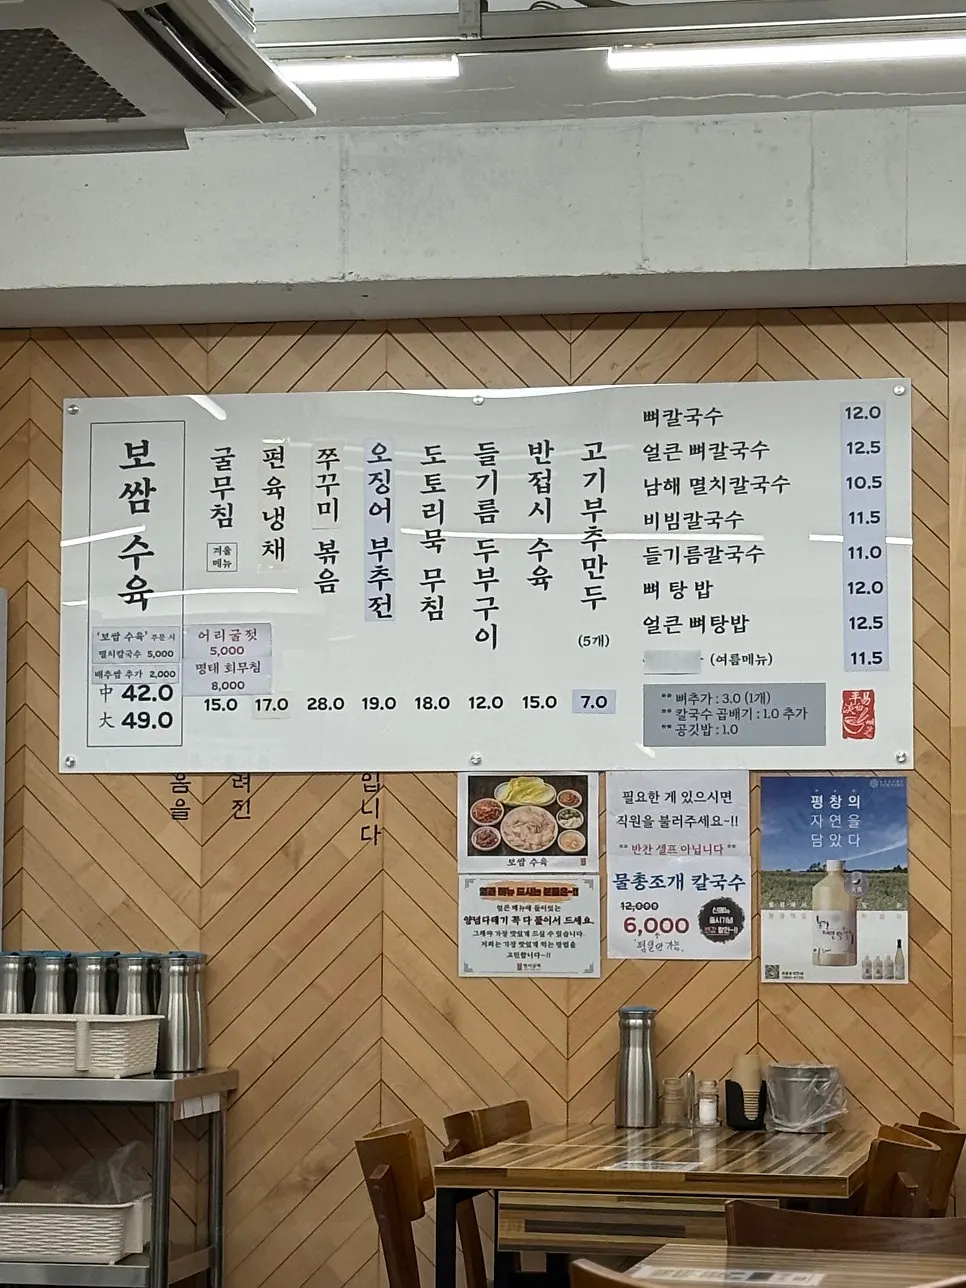 보쌈 수육
'보쌈 수육' 주문 시
멸치칼국수 5,000
배추쌈 추가 2,000
中 42.0
大 49.0
굴무침
겨울
메뉴
어리굴젓
5,000
명태 회무침
8,000
15.0
편육냉채
17.0
쭈꾸미 볶음
28.0
오징어 부추전
19.0
도토리묵 무침
18.0
들기름 두부구이
12.0
반접시 수육
15.0
고기부추만두
(5개)
7.0
뼈칼국수 12.0
얼큰 뼈칼국수 12.5
남해 멸치칼국수 10.5
비빔칼국수 11.5
들기름칼국수 11.0
뼈 탕 밥 12.0
얼큰 뼈탕밥 12.5
(여름메뉴) 11.5
** 뼈추가 : 3.0 (1개)
** 칼국수 곱배기 : 1.0 추가
** 공깃밥 : 1.0
음을
려진
입니다
보쌈 수육
얼큰 메뉴 드시는 분들은~!!
얼큰 메뉴에 들어있는
양념다데기 꼭 다 풀어서 드세요.
그래야 가장 맛있게 드실 수 있습니다.
저희는 가장 맛있게 먹는 방법을
고민합니다~!!
필요한 게 있으시면
직원을 불러주세요~!!
** 반찬 셀프 아닙니다 **
물총조개 칼국수
12,000
6,000
신메뉴
출시기념
반값 할인~!!
평일만 가능.
평창의
자연을
담았다